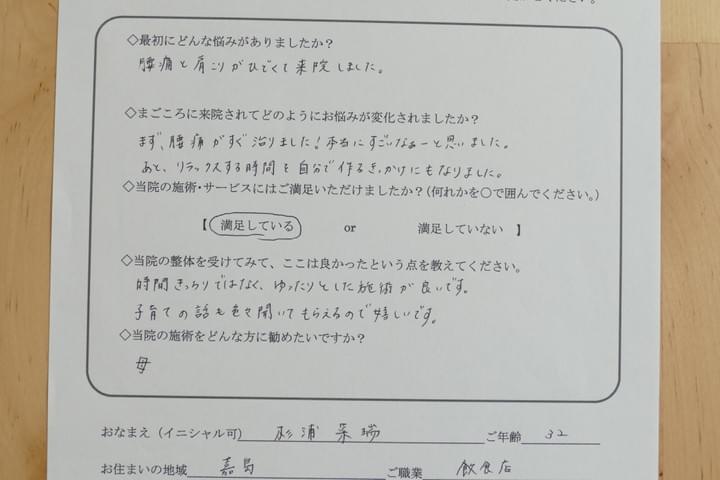 ください。
◇最初にどんな悩みがありましたか？
腰痛と肩こりがひどくて来院しました。
◇まごころに来院されてどのようにお悩みが変化されましたか？
まず、腰痛がすぐ治りました！本当にすごいなぁーと思いました。
あと、リラックスする時間を自分で作るきっかけにもなりました。
◇当院の施術・サービスにはご満足いただけましたか？（何れかを○で囲んでください。）
【 満足している or 満足していない 】
◇当院の整体を受けてみて、ここは良かったという点を教えてください。
時間きっちりではなく、ゆったりとした施術が良いです。
子育ての話も色々聞いてもらえるので嬉しいです。
◇当院の施術をどんな方に勧めたいですか？
母
おなまえ（イニシャル可） 杉浦 采瑞 ご年齢 32
お住まいの地域 嘉島 ご職業 飲食店